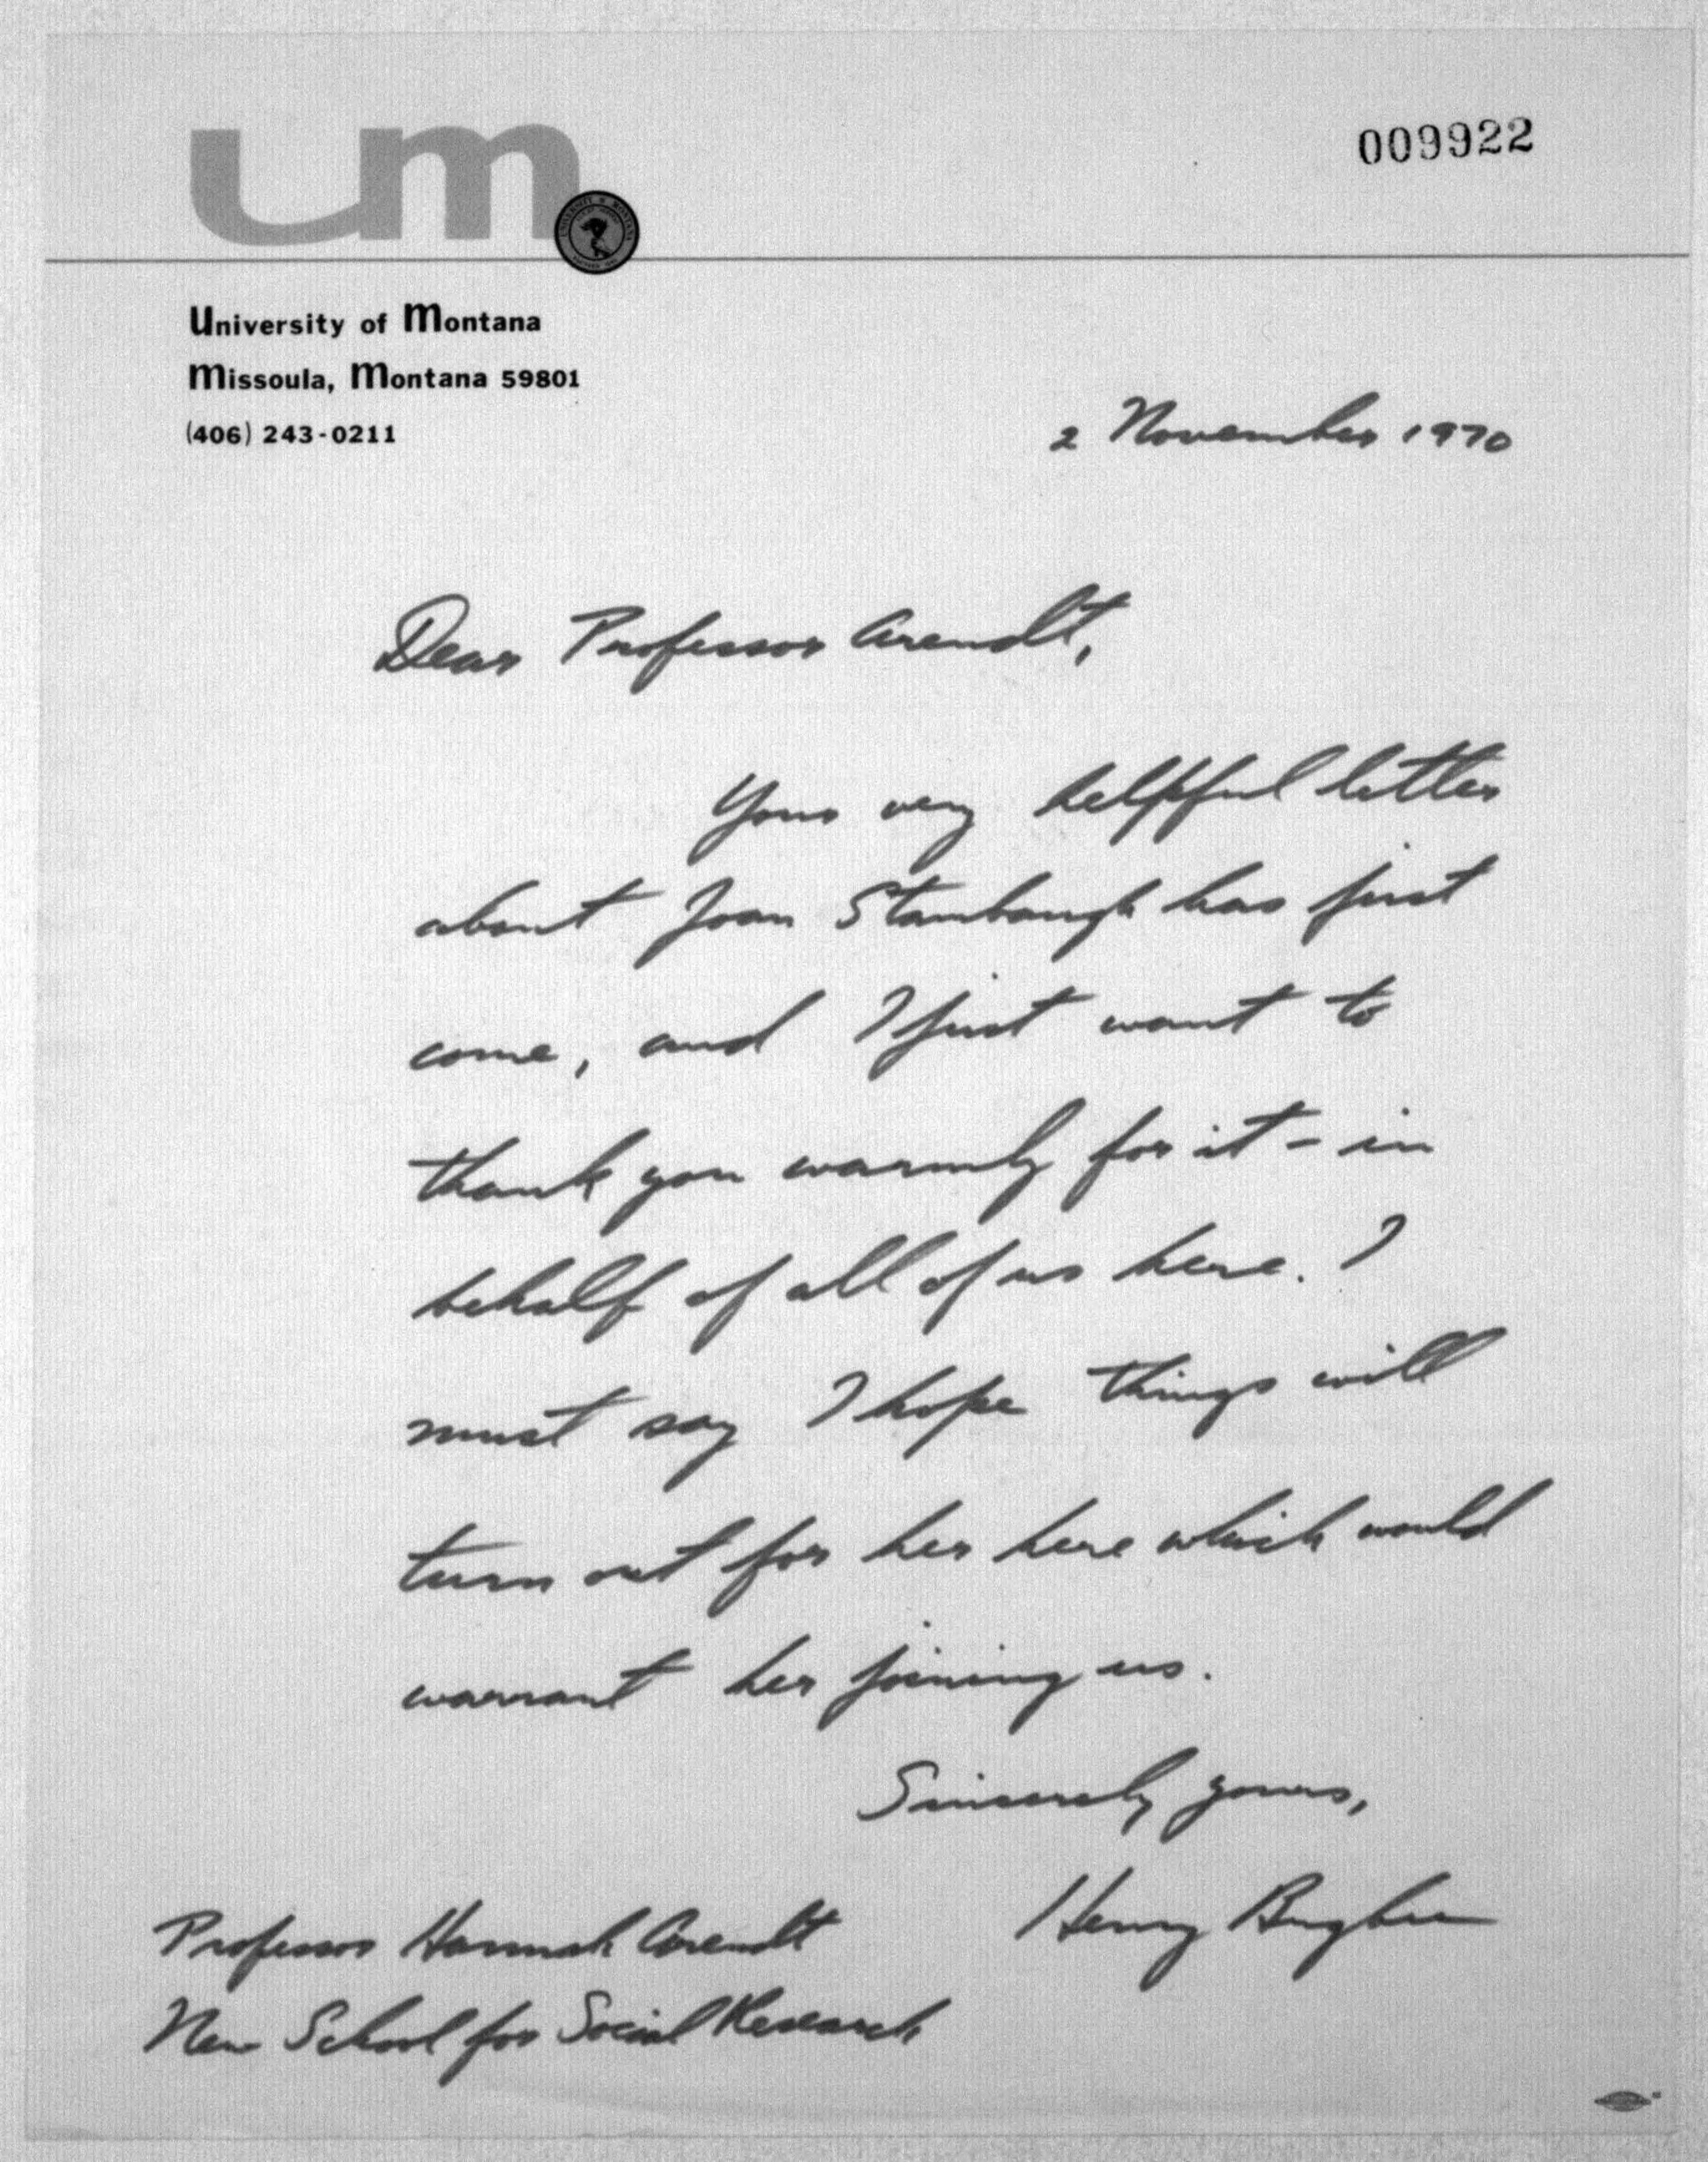 um
009922
University of Montana
Missoula, Montana 59801
(406) 243-0211
2 November 1970
Dear Professor Arendt,
Your very helpful letter
about Joan Stambaugh has just
come, and I just want to
thank you warmly for it - in
behalf of all of us here. I
must say I hope things will
turn out for her here which would
warrant her joining us.
Sincerely yours,
Henry Bugbee
Professor Hannah Arendt
New School for Social Research